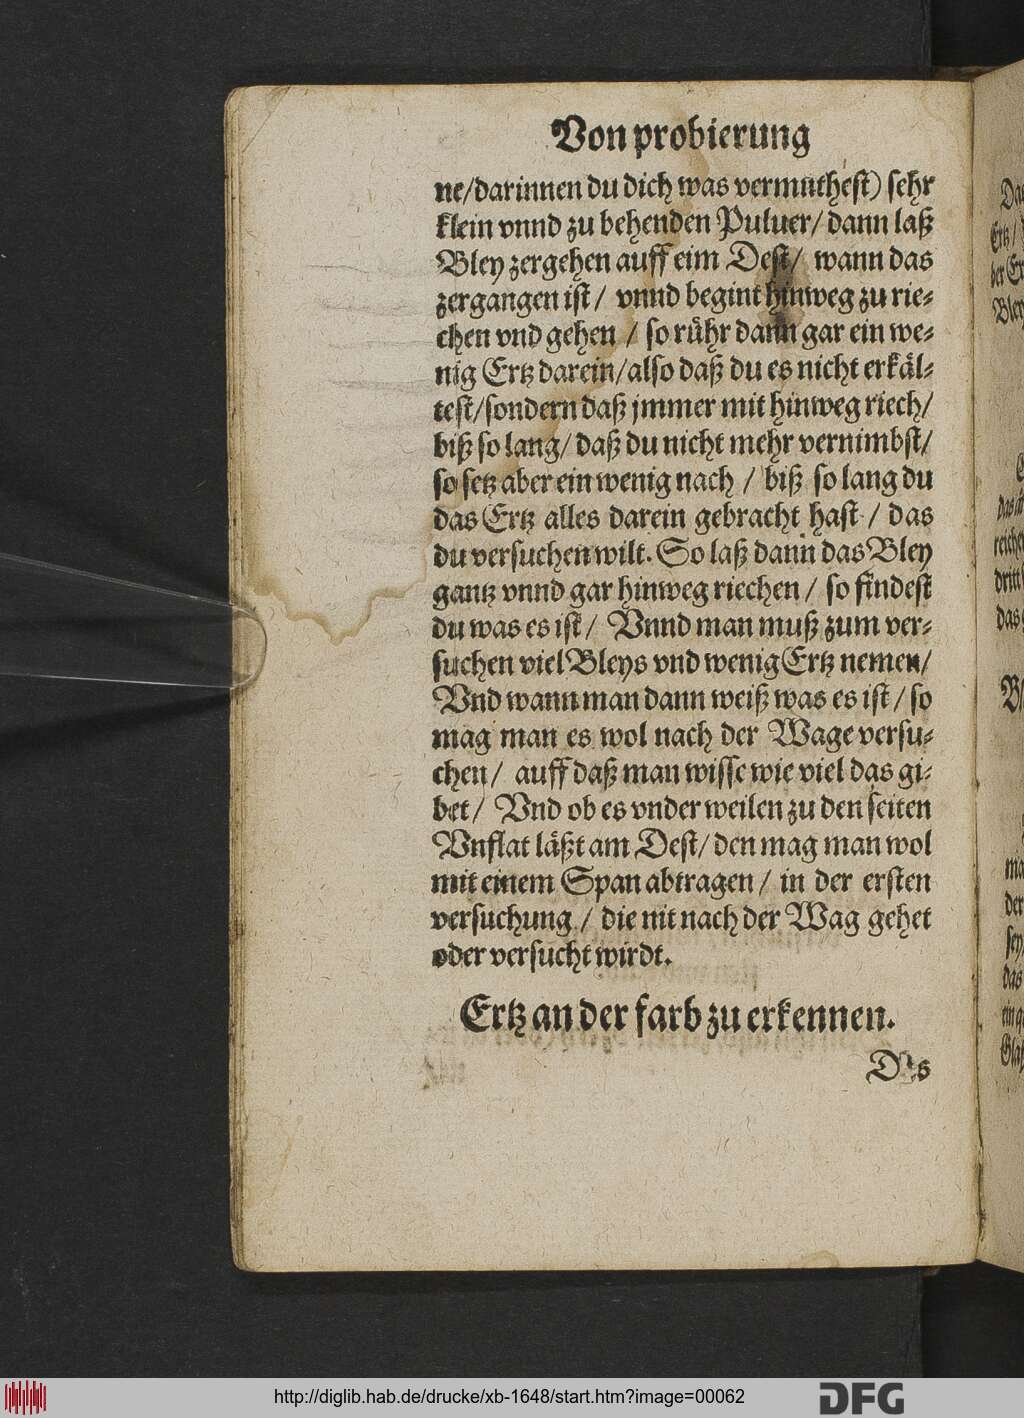 Von probierung
ne/darinnen du dich was vermuthest) sehr
klein vnnd zu behenden Puluer/ dann laß
Bley zergehen auff eim Dest/ wann das
zergangen ist/ vnnd begint hinweg zu rie-
chen vnd gehen / so rühr dann gar ein we-
nig Ertz darein/also daß du es nicht erkäl-
test/sondern daß jmmer mit hinweg riech/
biß so lang/ daß du nicht mehr vernimbst/
so setz aber ein wenig nach / biß so lang du
das Ertz alles darein gebracht hast / das
du versuchen wilt. So laß dann das Bley
gantz vnnd gar hinweg riechen / so findest
du was es ist/ Vnnd man muß zum ver-
suchen viel Bleys vnd wenig Ertz nemen/
Vnd wann man dann weiß was es ist / so
mag man es wol nach der Wage versu-
chen/ auff daß man wisse wie viel das gi-
bet/ Vnd ob es vnder weilen zu den seiten
Vnflat läßt am Dest/ den mag man wol
mit einem Span abtragen / in der ersten
versuchung / die nit nach der Wag gehet
oder versucht wirdt.
Ertz an der farb zu erkennen.
Das
http://diglib.hab.de/drucke/xb-1648/start.htm?image=00062
DFG